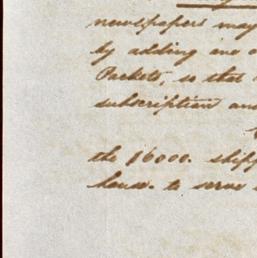 newspapers may
by adding one o
Packets, so that
subscription and
the 16000. shipp
house. to serve